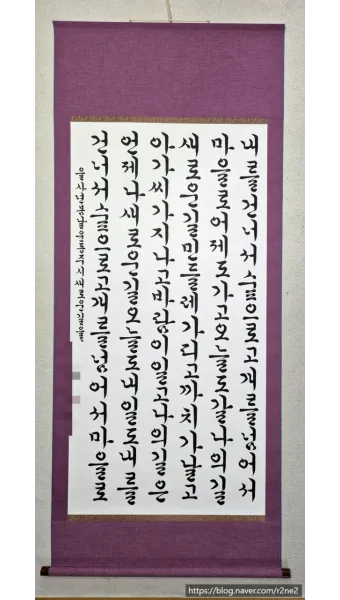 내를건너서숲으로고개를넘어서
마을로어제도가고오늘도갈나의길
새로운길민들레가피고까치가날고
아가씨가지나고바람이일고나의길은
언제나새로운길오늘도내일도내를
건너서숲으로고개를넘어서마을로
윤동주시새로운길
https://blog.naver.com/r2ne2